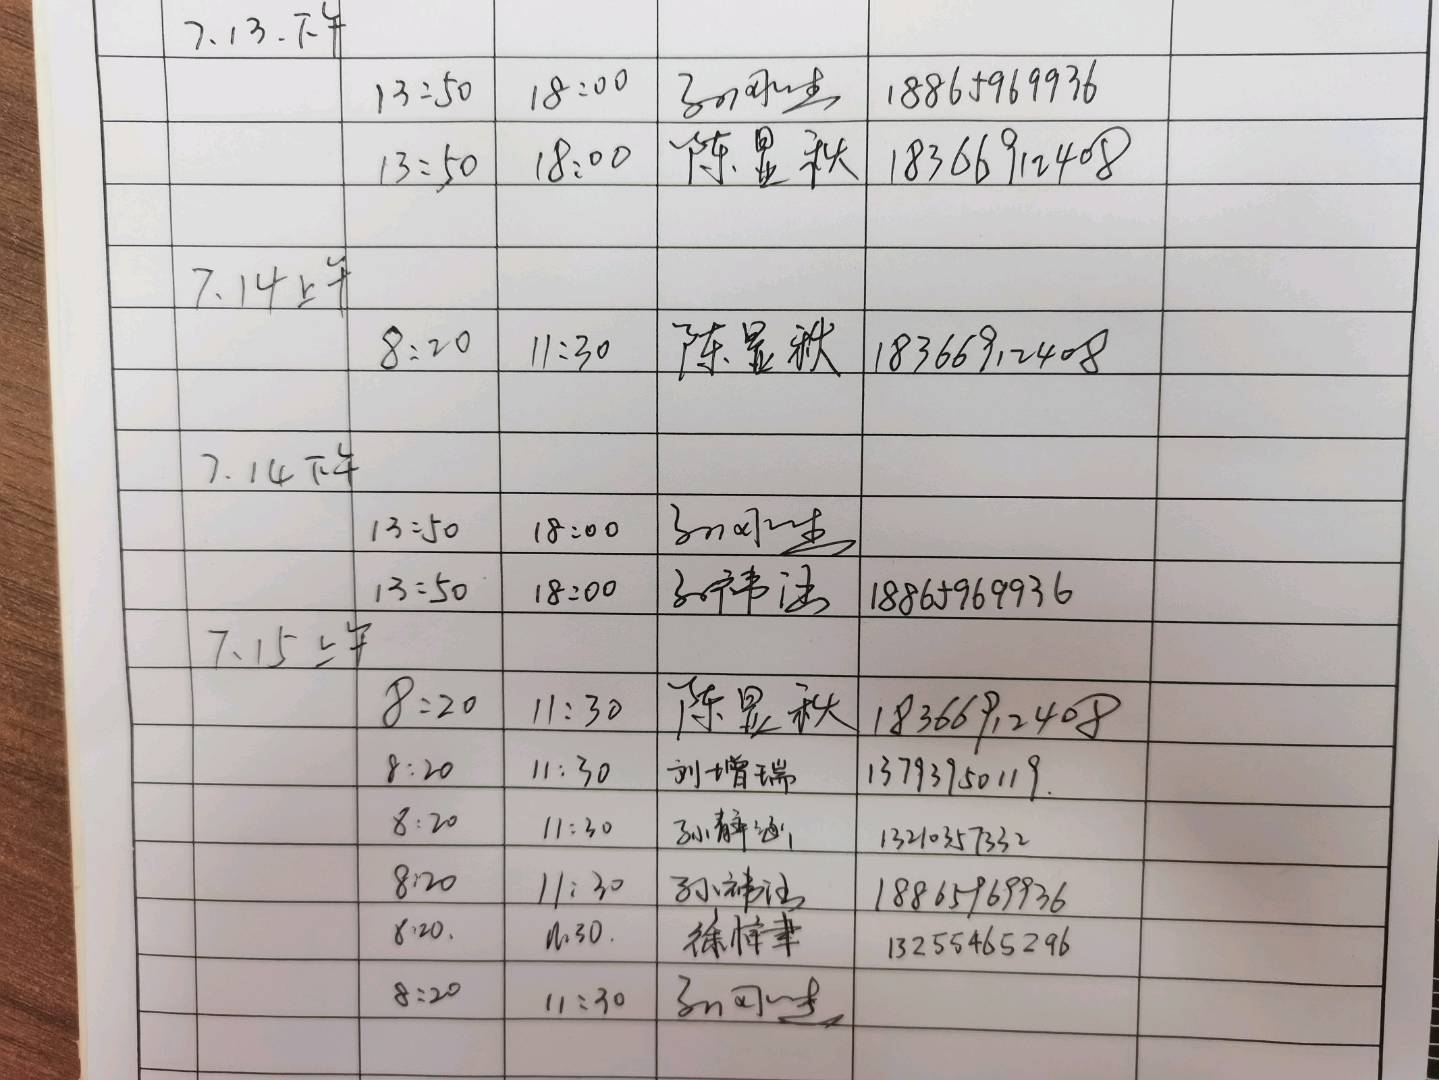 7.13.下午
13:50 18:00 18865969936
13:50 18:00 陈显秋 18366912408
7.14上午
8:20 11:30 陈显秋 18366912408
7.14下午
13:50 18:00
13:50 18:00 孙祎涵 18865969936
7.15上午
8:20 11:30 陈显秋 18366912408
8:20 11:30 刘增瑞 13793950119.
8:20 11:30 孙静 13210357332
8:20 11:30 孙祎涵 18865969936
8:20. 11:30. 徐 13255465296
8:20 11:30